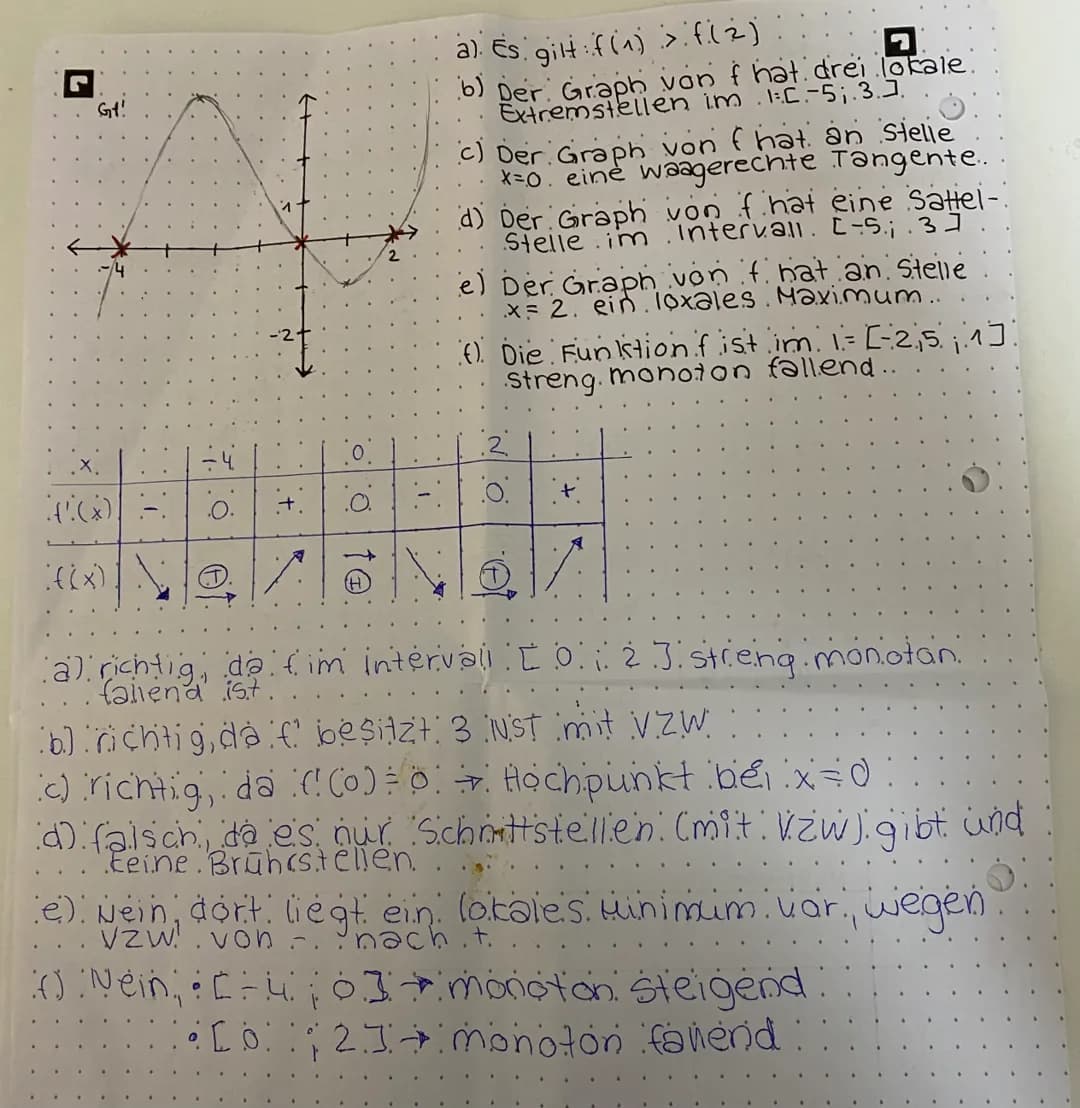 Gf'
1
-4
2
-2
a) Es gilt: f(1) > f(2)
b) Der Graph von f hat drei lokale
Extremstellen im I=[-5; 3].
c) Der Graph von f hat an Stelle
x=0 eine waagerechte Tangente.
d) Der Graph von f hat eine Sattel-
stelle im Intervall [-5; 3]
e) Der Graph von f hat an Stelle
x= 2 ein lokales Maximum.
f) Die Funktion f ist im I= [-2,5 ; 1]
streng monoton fallend.
x -4 0 2
f'(x) - 0 + 0 - 0 +
f(x) ↘ T → ↗ → H ↘ T → ↗
a) richtig, da f im Intervall [0 ; 2] streng monoton
fallend ist.
b) richtig, da f' besitzt 3 NST mit VZW
c) richtig, da f'(0)=0 → Hochpunkt bei x=0
d) falsch, da es nur Schnittstellen (mit VZW) gibt und
keine Brührstellen.
e) Nein, dort liegt ein lokales Minimum vor, wegen
VZW von - nach +.
f) Nein, • [-4 ; 0] → monoton steigend
• [0 ; 2] → monoton fallend